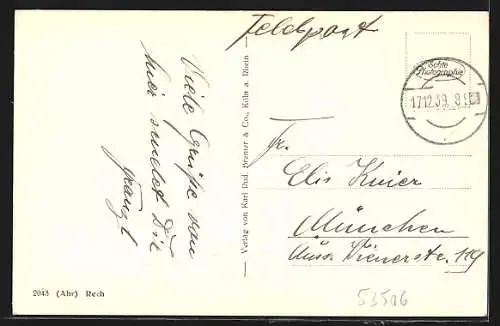 Feldpost
Echte
Photographie
17.12.39. 8
Viele Grüße von
hier sendet Dir
Franzl
Verlag von Karl Rud. Bremer & Co., Köln a. Rhein
Fr.
Elis Knier
München
Wienerstr. 119
2043 (Ahr) Rech
53506